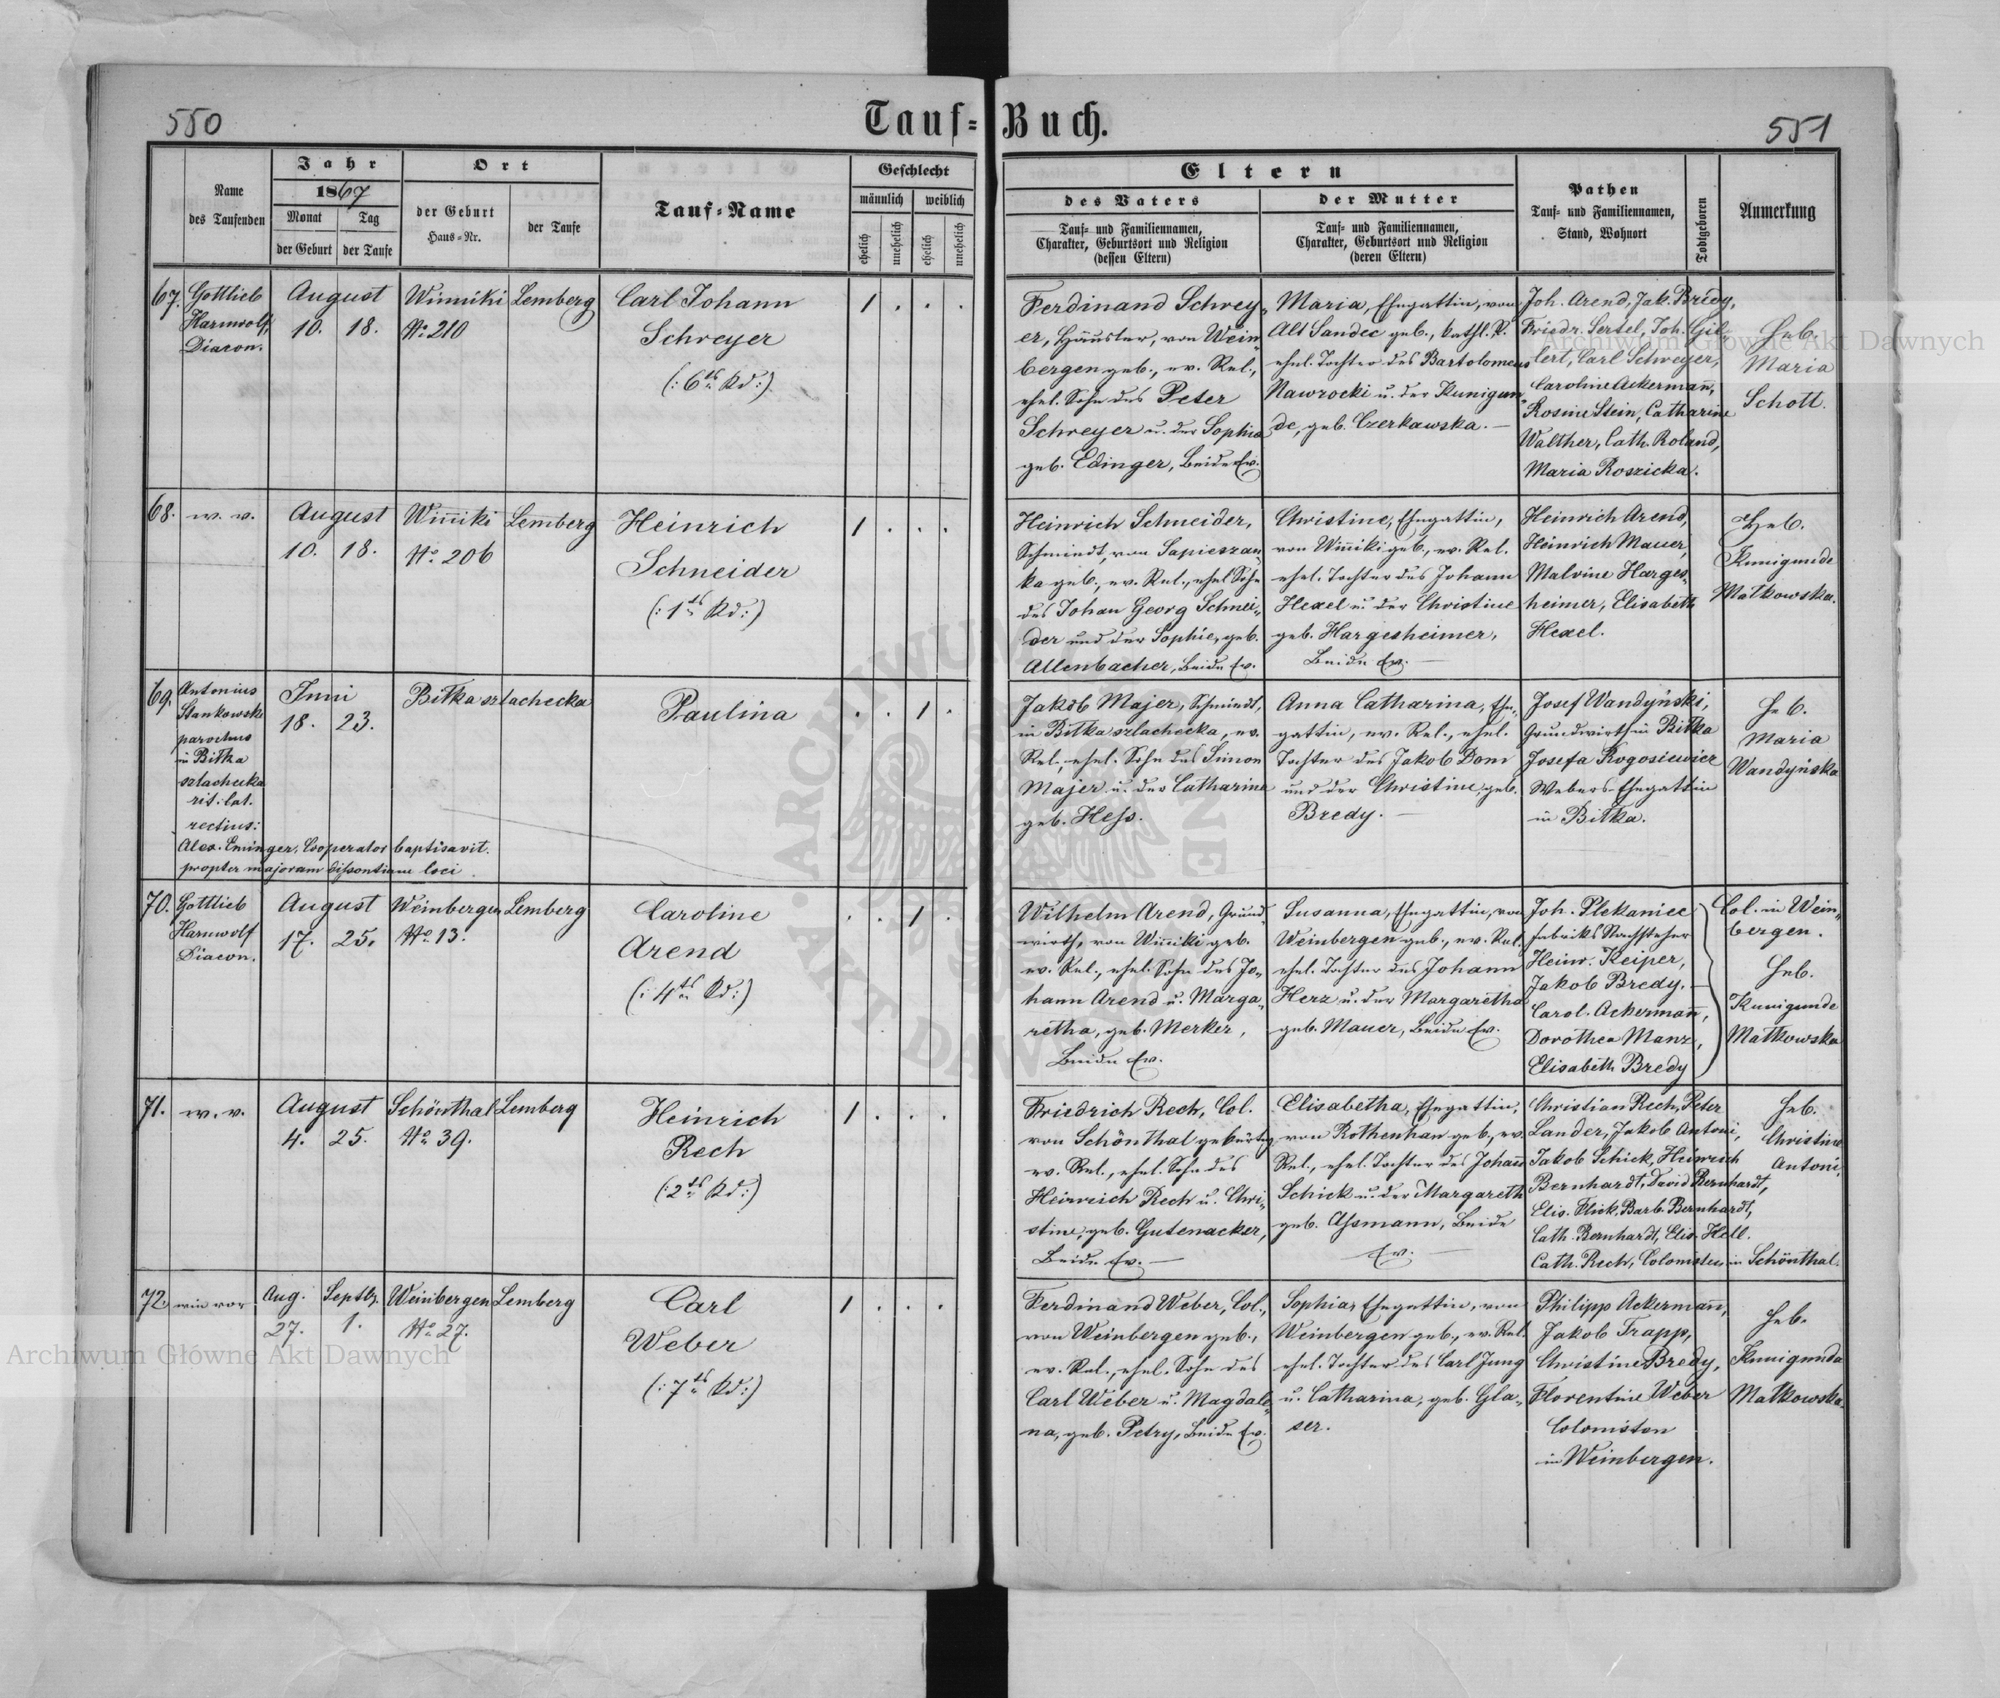 550
Tauf-Buch.
551
Name
des Taufenden
Jahr
1867
Monat
Tag
der Geburt
der Taufe
Ort
der Geburt
Haus-Nr.
der Taufe
Tauf-Name
Geschlecht
männlich
weiblich
ehelich
unehelich
ehelich
unehelich
Eltern
des Vaters
Tauf- und Familiennamen,
Charakter, Geburtsort und Religion
(dessen Eltern)
der Mutter
Tauf- und Familiennamen,
Charakter, Geburtsort und Religion
(deren Eltern)
Pathen
Tauf- und Familiennamen,
Stand, Wohnort
Todtgeboren
Anmerkung
67.
Gottlieb
Harnwolf,
Diacon.
August
10. 18.
Winniki
No 210
Lemberg
Carl Johann
Schreyer
(: 6tes Kd :)
1 . . .
Ferdinand Schrey-
er, Häusler, von Wein-
bergen geb., ev. Rel.,
ehel. Sohn des Peter
Schreyer u. der Sophia
geb. Edinger, Beide Ev.
Maria, Ehegattin, von
Alt Sandec geb., kathl. R.
ehel. Tochter des Bartolomeus
Nawrocki u. der Kunigun-
de, geb. Czerkawska. —
Joh. Arend, Jak. Bredy,
Friedr. Sertel, Joh. Gil-
lert, Carl Schreyer,
Caroline Ackermañ,
Rosine Stein, Catharine
Walther, Cath. Roland,
Maria Roszicka.
Heb.
Maria
Schott.
68.
w. v.
August
10. 18.
Wiñiki
No 206
Lemberg
Heinrich
Schneider
(: 1tes Kd :)
1 . . .
Heinrich Schneider,
Schmiedt, von Sapieszan-
ka geb., ev. Rel., ehel. Sohn
des Johan Georg Schnei-
der und der Sophie, geb.
Allenbacher, Beide Ev.
Christine, Ehegattin,
von Wiñiki geb., ev. Rel.
ehel. Tochter des Johann
Hexel u. der Christine
geb. Hargesheimer,
Beide Ev. —
Heinrich Arend,
Heinrich Mauer,
Malvine Harges-
heimer, Elisabeth
Hexel.
Heb.
Kunigunde
Matkowska.
69.
Antonius
Stankowski
parochus
in Biłka
szlachecka
rit: lat.
rectius:
Alex. Eminger, Cooperator baptisavit.
propter majoram loci
Juni
18. 23.
Biłka szlachecka
Paulina
. . 1 .
Jakob Majer, Schmiedt,
in Biłka szlachecka, ev.
Rel., ehel. Sohn des Simon
Majer u. der Catharina
geb. Hess.
Anna Catharina, Ehe-
gattin, ev. Rel., ehel.
Tochter des Jakob Dom
und der Christine, geb.
Bredy. —
Josef Wandyński,
Grundwirth in Biłka
Josefa Rogosiewicz
Webers-Ehegattin
in Biłka.
Heb.
Maria
Wandyńska
70.
Gottlieb
Harnwolf
Diacon.
August
17. 25.
Weinbergen
No 13.
Lemberg
Caroline
Arend
(: 4tes Kd :)
. . 1 .
Wilhelm Arend, Grund-
wirth, von Wiñiki geb.
ev. Rel., ehel. Sohn des Jo-
hann Arend u. Marga-
retha, geb. Merker,
Beide Ev.
Susanna, Ehegattin, von
Weinbergen geb., ev. Rel.
ehel. Tochter des Johann
Herz u. der Margaretha
geb. Mauer, Beide Ev.
Joh. Plekaniec
Fabriks
Heinr. Keiper,
Jakob Bredy,
Carol. Ackermañ,
Dorothea Manz,
Elisabeth Bredy
Col. in Wein-
bergen.
Heb.
Kunigunde
Matkowska
71.
w. v.
August
4. 25.
Schönthal
No 39.
Lemberg
Heinrich
Rech
(: 2tes Kd :)
1 . . .
Friedrich Rech, Col.
von Schönthal gebürtig
ev. Rel., ehel. Sohn des
Heinreich Rech u. Chri-
stine, geb. Gutenacker,
Beide Ev. —
Elisabetha, Ehegattin,
von Rothenhan geb., ev.
Rel., ehel. Tochter des Johañ
Schick u. der Margareth
geb. Assmann, Beide
Ev. —
Christian Rech, Peter
Lander, Jakob Antoni,
Jakob Schick, Heinrich
Bernhardt, David Bernhardt,
Elis. Flick, Barb. Bernhardt,
Cath. Bernhardt, Elis. Hell.
Cath. Rech, Colonisten in Schönthal.
Heb.
Christine
Antoni,
72.
wie vor
Aug. Septb.
27. 1.
Weinbergen
No 27.
Lemberg
Carl
Weber
(: 7tes Kd :)
1 . . .
Ferdinand Weber, Col.,
von Weinbergen geb.,
ev. Rel., ehel. Sohn des
Carl Weber u. Magdale-
na, geb. Petry, Beide Ev.
Sophia, Ehegattin, von
Weinbergen geb., ev. Rel.
ehel. Tochter des Carl Jung
u. Catharina, geb. Gla-
ser.
Philipp Ackermañ,
Jakob Trapp,
Christine Bredy,
Florentine Weber
Colonisten
in Weinbergen.
Heb.
Kunigunda
Matkowska.
Archiwum Główne Akt Dawnych
Archiwum Główne Akt Dawnych
ARCHIWUM GŁÓWNE AKT DAWNYCH